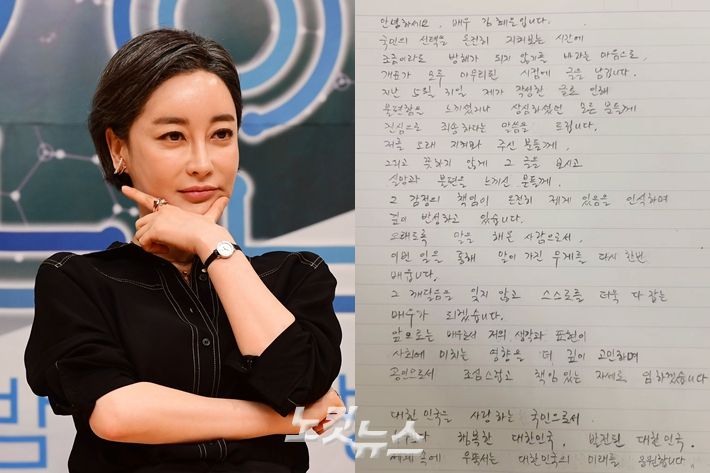 밤
노컷뉴스
안녕하세요, 배우 김혜은입니다.
국민의 선택을 온전히 지켜보는 시간에
조금이라도 방해가 되지 않기를 바라는 마음으로,
개표가 모두 마무리된 시점에 글을 남깁니다.
지난 5월 31일 제가 작성한 글로 인해
불편함을 느끼셨거나 상심하셨던 모든 분들께
진심으로 죄송하다는 말씀을 드립니다.
저를 오래 지켜봐 주신 분들께,
그리고 뜻하지 않게 그 글을 보시고
실망과 불편을 느끼신 분들께,
그 감정의 책임이 온전히 제게 있음을 인식하며
깊이 반성하고 있습니다.
오래도록 말을 해온 사람으로서,
이번 일을 통해 말이 가진 무게를 다시 한번
배웁니다.
그 깨달음을 잊지 않고 스스로를 더욱 다잡는
배우가 되겠습니다.
앞으로는 배우로서 저의 생각과 표현이
사회에 미치는 영향을 더 깊이 고민하며
공인으로서 조심스럽고 책임 있는 자세로 임하겠습니다
대한민국을 사랑하는 국민으로서
행복한 대한민국, 발전된 대한민국.
세계 속에 우뚝서는 대한민국의 미래를 응원합니다.